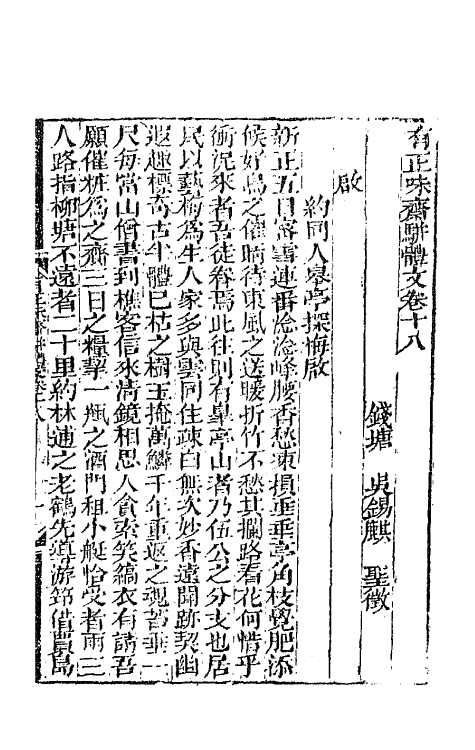 有正味齋駢體文卷十八
錢塘 吳錫麒 聖徵
啟
約同人皋亭探梅啟
新正五日當雪連番淰淰峰腰香愁凍損垂垂亭角枝覺肥添
候好鳥之催晴待東風之送暖折竹不愁其攔路看花何惜乎
衝況來者吾徒眷焉此往則有皋亭山者乃伍公之分支也居
民以藝梅爲生人家多與雲同住疎白無次妙香遠聞跡契幽
遐趣標奇古半體已枯之樹玉掩萬鱗千年重返之魂苔垂一
尺每當山僧書到樵客信來淸鏡相思人貪索笑縞衣有請吾
願催粧爲之齎三日之糧挈一瓻之酒門租小艇恰受者兩三
人路指柳塘不遠者二十里約林逋之老鶴先導游筇借